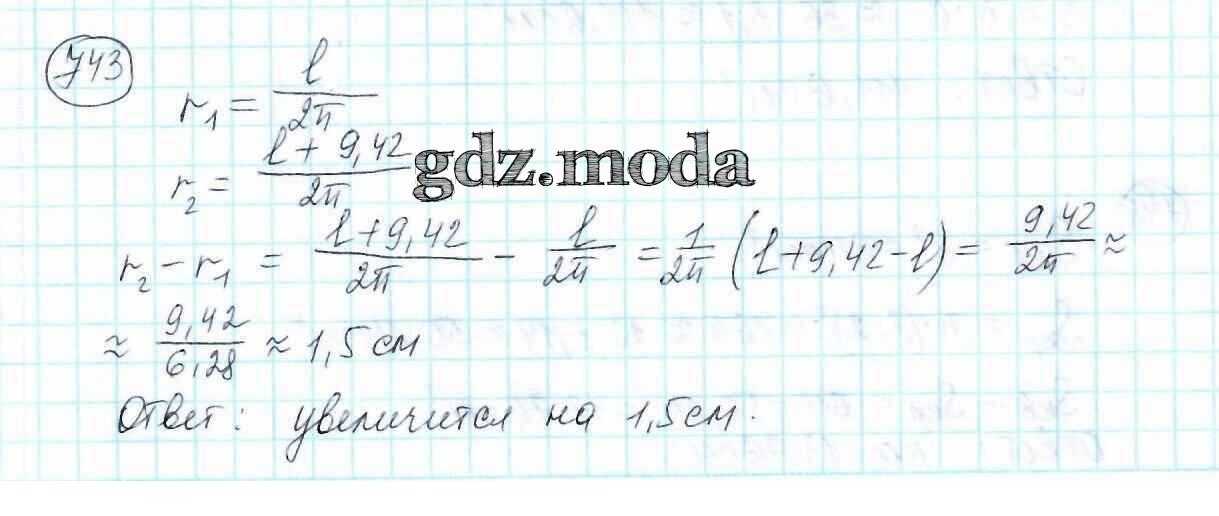 743
r₁ = l/2π
r₂ = (l + 9,42)/2π
gdz.moda
r₂ − r₁ = (l+9,42)/2π − l/2π = 1/2π (l+9,42−l) = 9,42/2π ≈
≈ 9,42/6,28 ≈ 1,5 см
Ответ: увеличится на 1,5см.